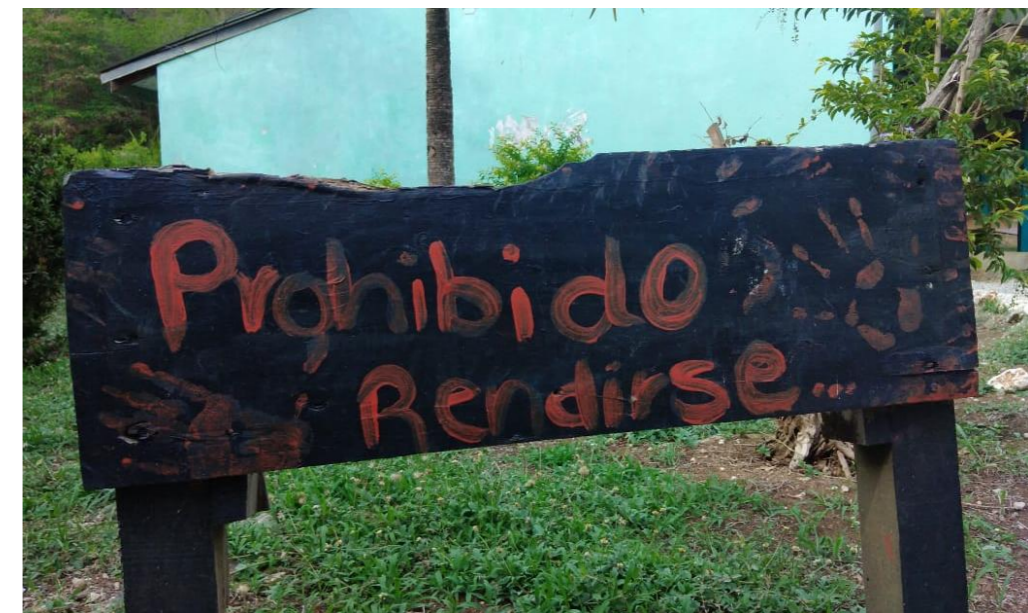 Prohibido
Rendirse...